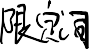 限定词